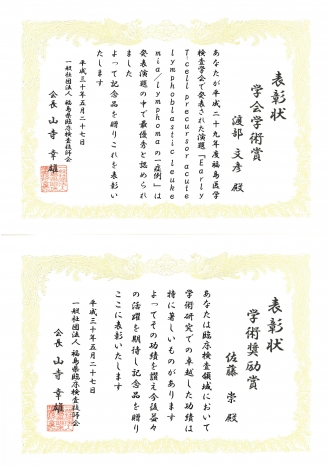 表彰状
学会学術賞
渡部 文彦 殿
あなたが平成二十九年度福島医学
検査学会で発表された演題「Early
T-cell precursor acute
lymphoblastic leuke
mia/lymphomaの一症例」は
発表演題の中で最優秀と認められ
ました
よって記念品を贈りこれを表彰い
たします
平成三十年五月二十七日
一般社団法人 福島県臨床検査技師会
会長 山寺 幸雄
表彰状
学術奨励賞
佐藤 崇 殿
あなたは臨床検査領域において
学術研究での卓越した功績は
特に著しいものがあります
よってその功績を讃え今後益々
の活躍を期待し記念品を贈り
ここに表彰いたします
平成三十年五月二十七日
一般社団法人 福島県臨床検査技師会
会長 山寺 幸雄